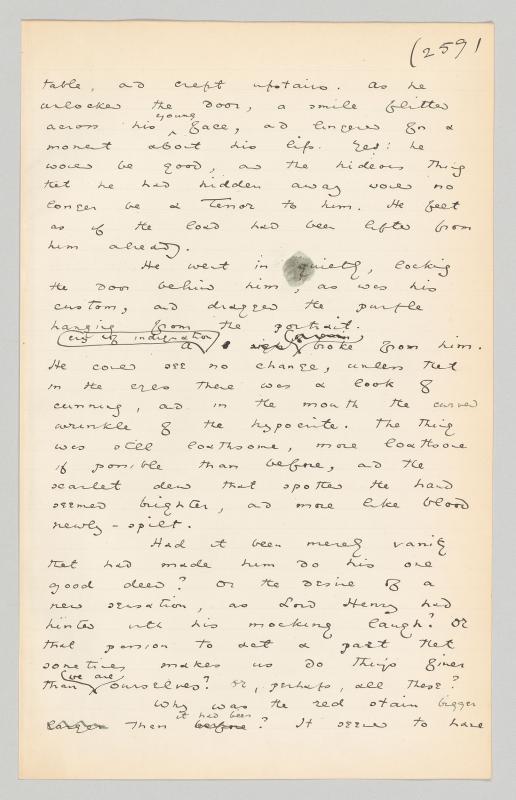 (259)
table, and crept upstairs. As he
unlocked the door, a smile flitted
across his young face, and lingered for a
moment about his lips. Yes: he
would be good, and the hideous thing
that he had hidden away would no
longer be a terror to him. He felt
as if the load had been lifted from
him already.
He went in quietly, locking
the door behind him, as was his
custom, and dragged the purple
hanging from the portrait.
A cry of indignation broke from him.
He could see no change, unless that
in the eyes there was a look of
cunning, and in the mouth the curved
wrinkle of the hypocrite. The thing
was still loathsome, more loathsome
if possible than before, and the
scarlet dew that spotted the hand
seemed brighter, and more like blood
newly-spilt.
Had it been merely vanity
that had made him do his one
good deed? Or the desire of a
new sensation, as Lord Henry had
hinted with his mocking laugh? Or
that passion to act a part that
sometimes makes us do things finer
than we are ourselves? Or, perhaps, all these?
Why was the red stain bigger
larger than it had been before? It seemed to have